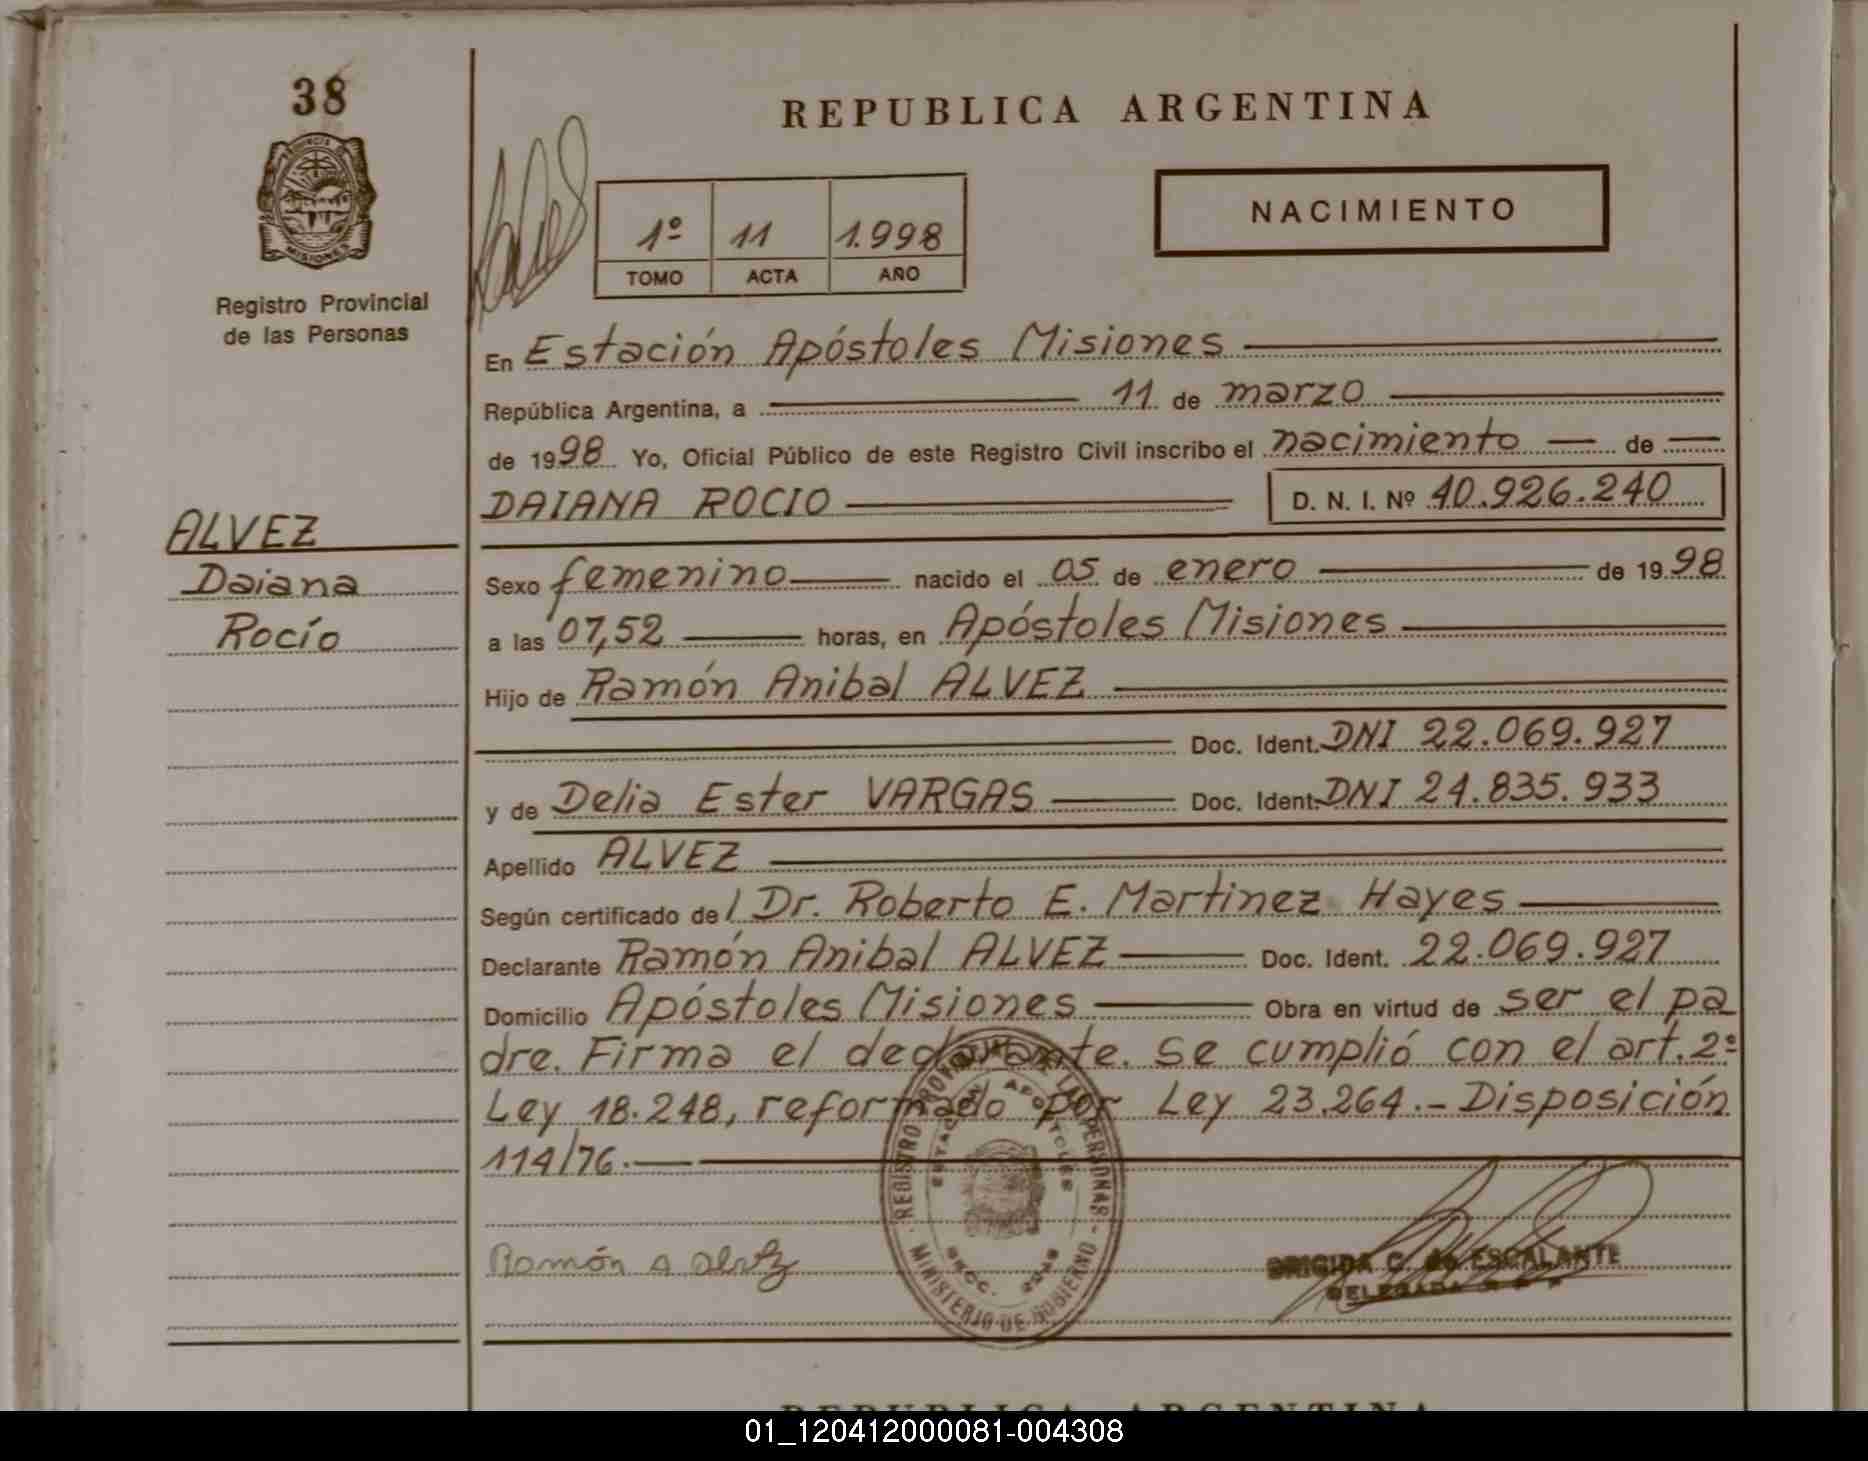 38
PROVINCIA DE
MISIONES
Registro Provincial
de las Personas
REPUBLICA ARGENTINA
1º 11 1.998
TOMO ACTA AÑO
NACIMIENTO
En Estación Apóstoles Misiones
República Argentina, a 11 de marzo
de 1998 Yo, Oficial Público de este Registro Civil inscribo el nacimiento de
DAIANA ROCIO D. N. I. Nº 40.926.240
ALVEZ
Daiana
Rocío
Sexo femenino nacido el 05 de enero de 1998
a las 07,52 horas, en Apóstoles Misiones
Hijo de Ramón Anibal ALVEZ
Doc. Ident. DNI 22.069.927
y de Delia Ester VARGAS Doc. Ident. DNI 24.835.933
Apellido ALVEZ
Según certificado del Dr. Roberto E. Martinez Hayes
Declarante Ramón Anibal ALVEZ Doc. Ident. 22.069.927
Domicilio Apóstoles Misiones Obra en virtud de ser el pa
dre. Firma el declarante. Se cumplió con el art. 2º
Ley 18.248, reformado por Ley 23.264.- Disposición
114/76.-
REGISTRO PROVINCIAL DE LAS PERSONAS - MINISTERIO DE GOBIERNO -
ESTACION APOSTOLES
SECC.
Ramón A Alvez
BRIGIDA C. de ESCALANTE
DELEGADA
REPUBLICA ARGENTINA
01_120412000081-004308